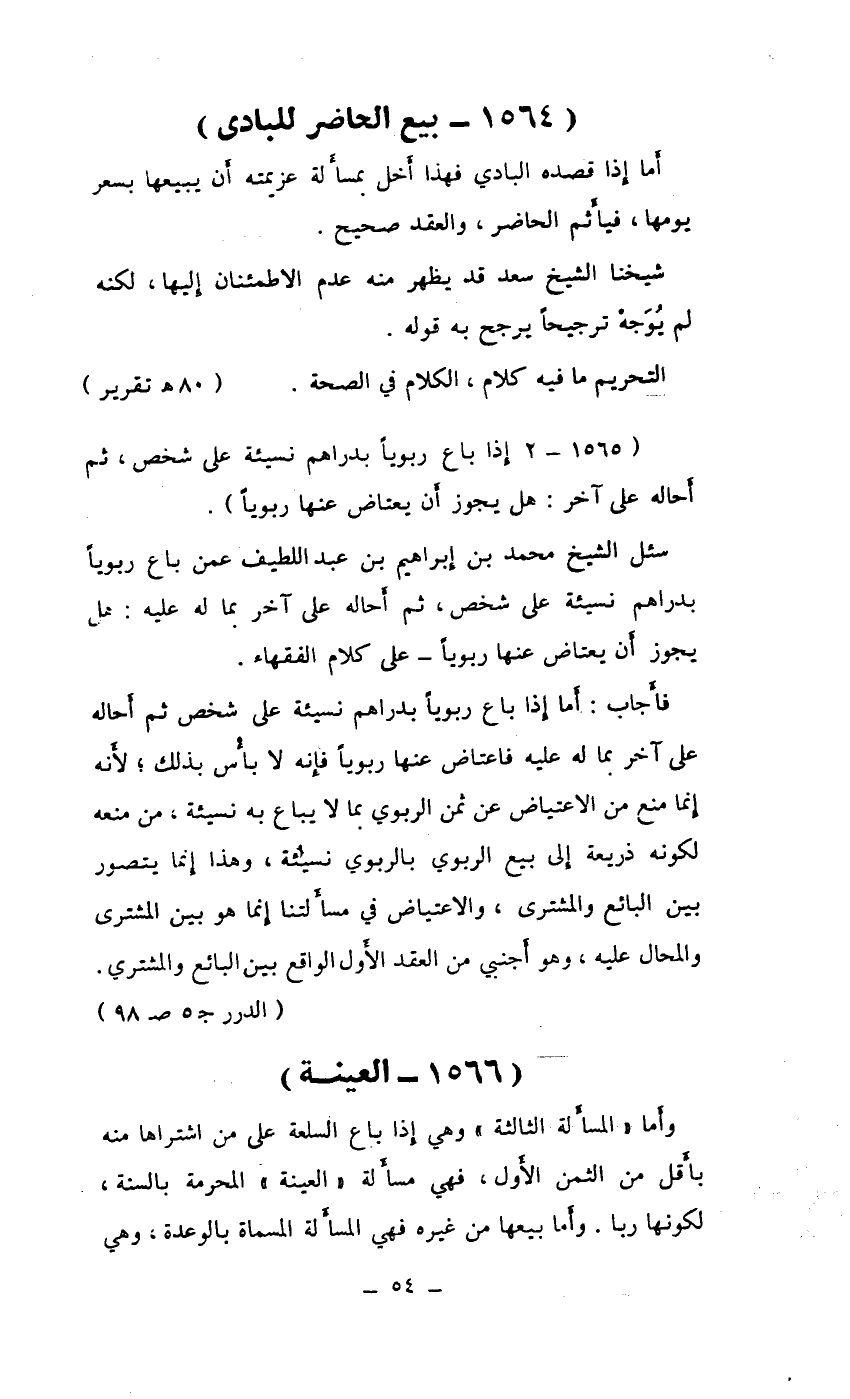 ( ١٥٦٤ ـ بيع الحاضر للبادى )
أما إذا قصده البادي فهذا أخل بمسألة عزيمته أن يبيعها بسعر
يومها ، فيأثم الحاضر ، والعقد صحيح .
شيخنا الشيخ سعد قد يظهر منه عدم الاطمئنان إليها ، لكنه
لم يُوَجهْ ترجيحاً يرجح به قوله .
التحريم ما فيه كلام ، الكلام في الصحة . ( ٨٠ هـ تقرير )
( ١٥٦٥ ـ ٢ إذا باع ربوياً بدراهم نسيئة على شخص ، ثم
أحاله على آخر : هل يجوز أن يعتاض عنها ربوياً ) .
سئل الشيخ محمد بن إبراهيم بن عبداللطيف عمن باع ربوياً
بدراهم نسيئة على شخص ، ثم أحاله على آخر بما له عليه : هل
يجوز أن يعتاض عنها ربوياً ـ على كلام الفقهاء .
فأجاب : أما إذا باع ربوياً بدراهم نسيئة على شخص ثم أحاله
على آخر بما له عليه فاعتاض عنها ربوياً فإنه لا بأس بذلك ؛ لأنه
إنما منع من الاعتياض عن ثمن الربوي بما لا يباع به نسيئة ، من منعه
لكونه ذريعة إلى بيع الربوي بالربوي نسيئة ، وهذا إنما يتصور
بين البائع والمشترى ، والاعتياض في مسألتنا إنما هو بين المشترى
والمحال عليه ، وهو أجنبي من العقد الأول الواقع بين البائع والمشتري .
( الدرر جـ ٥ صـ ٩٨ )
( ١٥٦٦ ـ العينة )
وأما « المسألة الثالثة » وهي إذا باع السلعة على من اشتراها منه
بأقل من الثمن الأول ، فهي مسألة « العينة » المحرمة بالسنة ،
لكونها ربا . وأما بيعها من غيره فهي المسألة المسماة بالوعدة ، وهي
ـ ٥٤ ـ